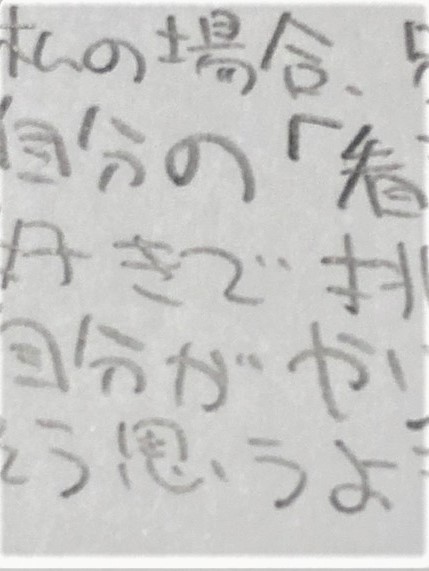 私の場合、
自分の「看
好きで
自分がや
そう思うよ